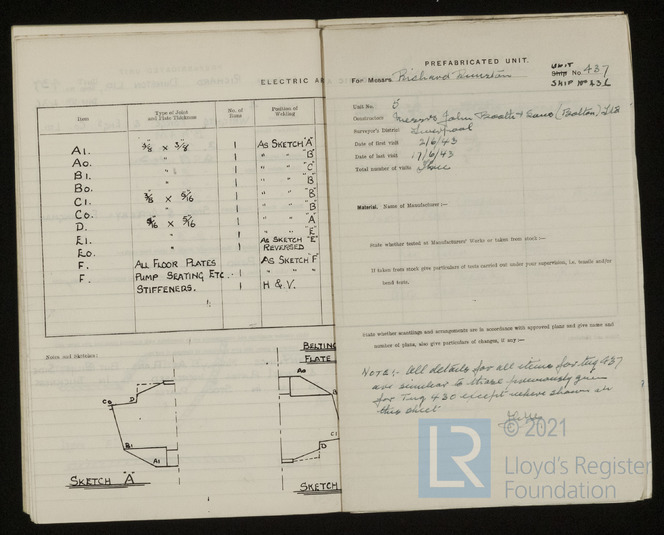 ELECTRIC A
Item
Type of Joint
and Plate Thickness
No. of
Items
Position of
Welding
A1. 3/8" x 3/8" 1 AS SKETCH "A"
A0. " 1 " " "B"
B1. " 1 " " "C"
B0. " 1 " " "B"
C1. 3/8" x 5/16" 1 " " "B"
C0. " 1 " " "B"
D. 5/16" x 5/16" 1 " " "A"
E1. " 1 " " "E"
E0. " 1 AS SKETCH "E" REVERSED
F. ALL FLOOR PLATES 1 AS SKETCH "F"
F. PUMP SEATING ETC. 1 " " "
STIFFENERS. 1 H & V.
Notes and Sketches:
BELTING
PLATE
A0
B
C1
D
C0
D
B1
A1
SKETCH "A"
SKETCH
PREFABRICATED UNIT.
UNIT
Ship No. 437
SHIP No 431
For Messrs. Richard Dunston
Unit No. 5
Constructors Messrs John Booth & Sons (Bolton) Ltd
Surveyor's District Liverpool
Date of first visit 2/6/43
Date of last visit 17/6/43
Total number of visits Three
Material. Name of Manufacturer:—
State whether tested at Manufacturers' Works or taken from stock:—
If taken from stock give particulars of tests carried out under your supervision, i.e. tensile and/or
bend tests.
State whether scantlings and arrangements are in accordance with approved plans and give name and
number of plans, also give particulars of changes, if any:—
NOTE:- All details for all items for tug 437
are similar to those previously given
for Tug 430 except where shown on
this sheet
© 2021
LR
Lloyd's Register
Foundation